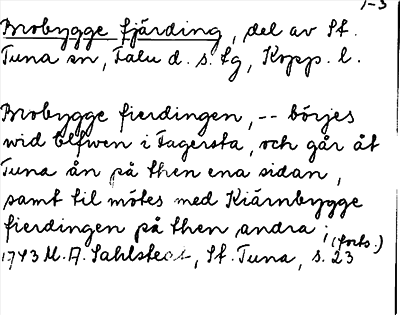 1-3
Brobygge fjärding, del av St.
Tuna sn, Falu d. s. fg, Kopp. l.
Brobygge fierdingen, -- börjes
wid Elfwen i Fagersta, och går åt
Tuna ån på then ena sidan,
samt til mötes med Kiärnbygge
fierdingen på then andra; (forts.)
1743 M. A. Sahlstedt, St. Tuna, s. 23